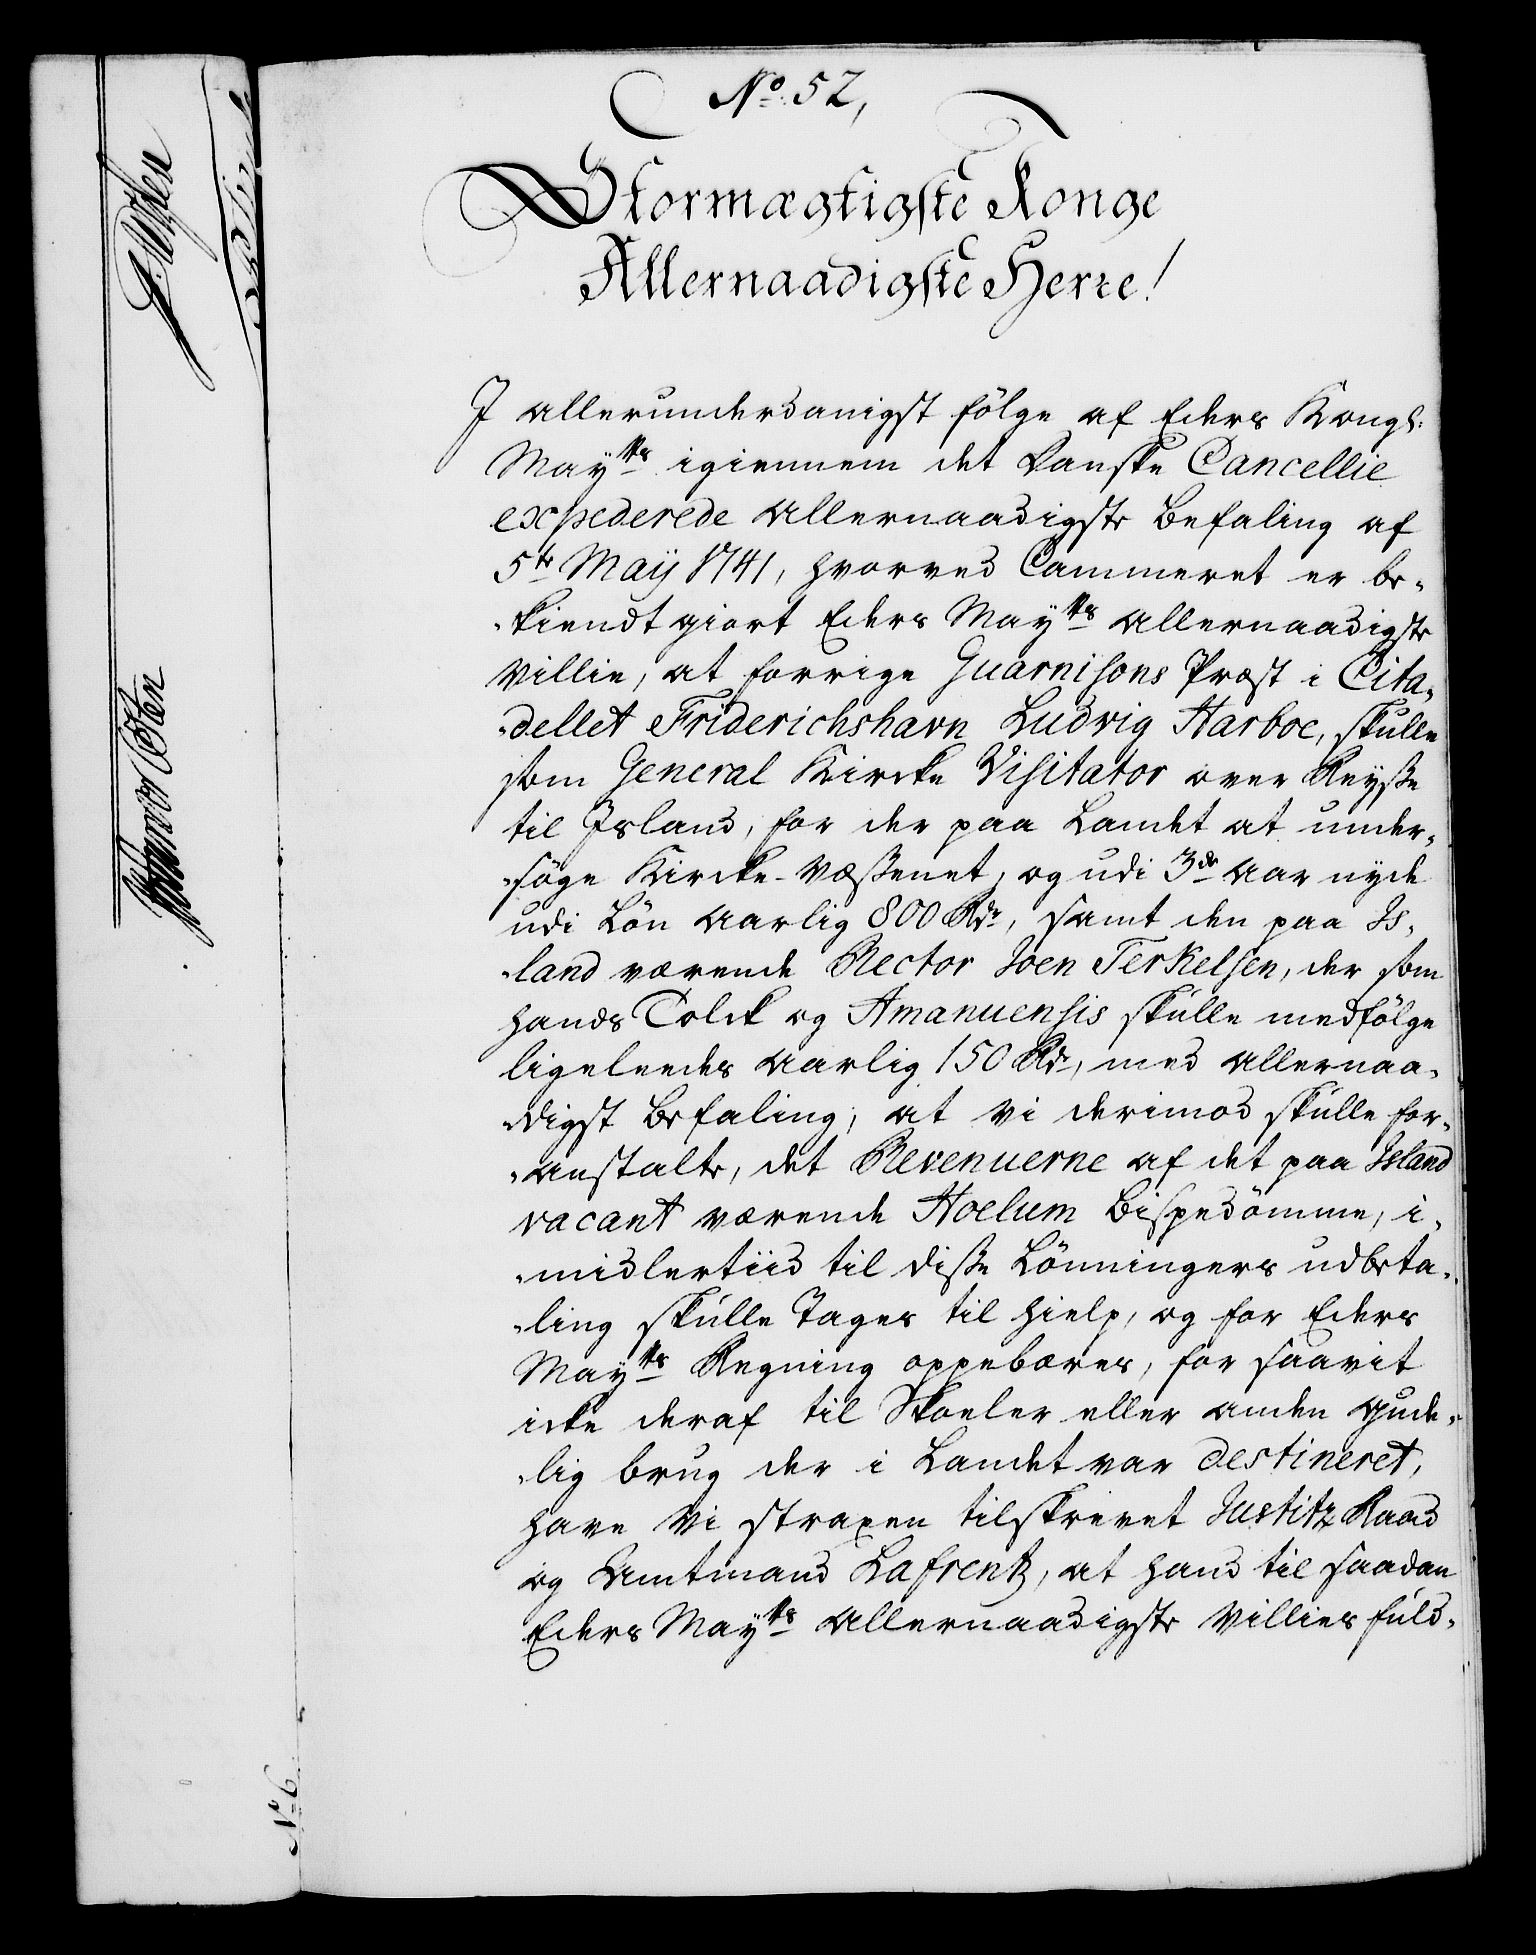 No. 52,
Stormægtigste Konge
Allernaadigste Herre!
I allerunderdanigst fölge af Eders Kongl:
Mayts igiennem det Danske Cancellie
expederede allernaadigste Befaling af
5te Maij 1741, hvorved Cammeret er be-
-kiendtgiort Eders Mayts allernaadigste
Villie, at forrige Guarnisons Præst i Cita-
-dellet Friderichshavn Ludvig Harboe, skulle
som General Kircke Visitator over Reysse
til Island, for der paa Landet at under-
-söge Kircke-Væssenet, og udi 3de Aar nyde
udi Lön aarlig 800 Rdr, samt den paa Is-
-land værende Rector Joen Terkelsen, der som
hands Tolck og Amanuensis skulle medfölge
ligeleedes aarlig 150 Rdr, med allernaa-
-digst Befaling, at vi derimod skulle for-
-anstalte, det Revenuerne af det paa Island
vacant værende Hoelum Bispedömme, i-
-midlertiid til disse Lönningers udbeta-
-ling skulle tages til hielp, og for Eders
Mayts Regning oppebæres, for saavit
icke deraf til Skoeler eller anden gude-
-lig brug der i Landet var destineret,
have vi straxen tilskrevet Justitz Raad
og Amtmand Lafrentz, at hand til saadan
Eders Mayts allernaadigste Villies fuld-
No 6